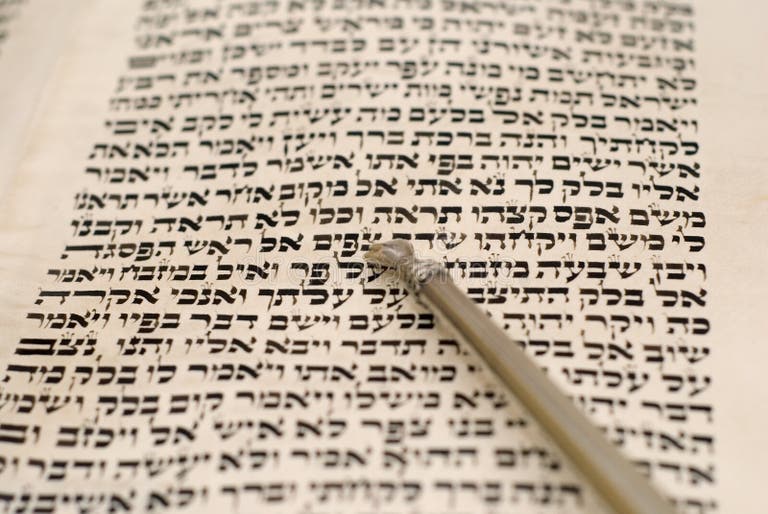 אזעם לא זעם יהוה כי מראש צרים אראנו
ומגבעות אשורנו הן עם לבדד ישכן ובגוים
לא יתחשב מי מנה עפר יעקב ומספר את רבע
ישראל תמת נפשי מות ישרים ותהי אחריתי כמהו
ויאמר בלק אל בלעם מה עשית לי לקב איבי
לקחתיך והנה ברכת ברך ויען ויאמר הלא את
אשר ישים יהוה בפי אתו אשמר לדבר ויאמר
אליו בלק לך נא אתי אל מקום אחר אשר תראנו
משם אפס קצהו תראה וכלו לא תראה וקבנו
לי משם ויקחהו שדה צפים אל ראש הפסגה
ויבן שבעה מזבחת פר ואיל במזבח ויאמר
אל בלק התיצב על עלתך ואנכי אקרה
כה ויקר יהוה בלעם וישם דבר בפיו ויאמר
שוב אל בלק תדבר ויבא אליו והנו נצב
על עלתו מואב אתו ויאמר לו בלק מה
דבר יהוה משלו ויאמר קום בלק ושמע
בנו צפר לא איש אל ויכזב
ההוא אמר ולא יעשה ודבר ולא
הנה ברך לקחתי וברך ולא אשיבנה